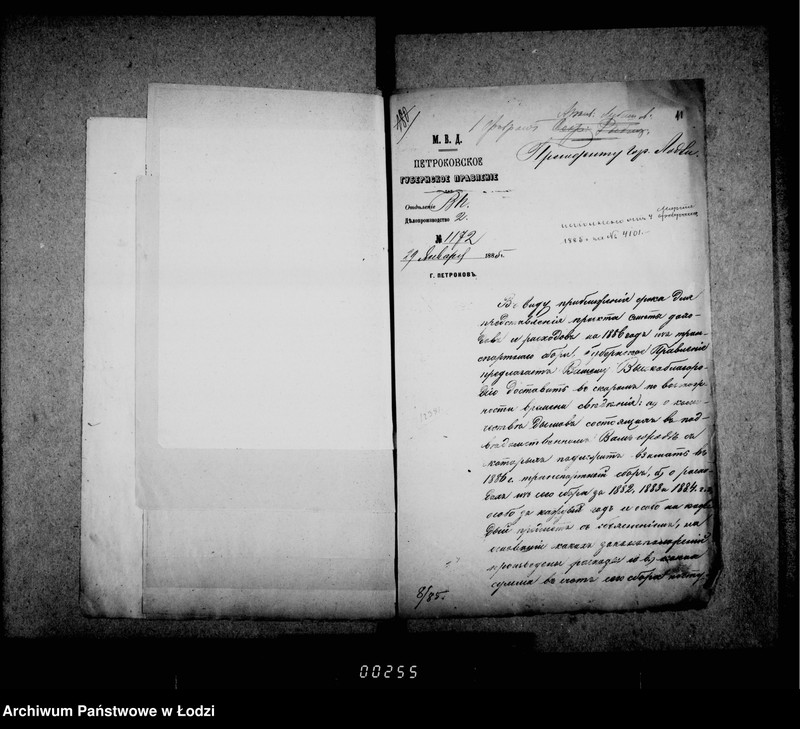 180
41
1 Февраля
М. В. Д.
ПЕТРОКОВСКОЕ
ГУБЕРНСКОЕ ПРАВЛЕНІЕ
Президенту гор. Лодзи.
Отдѣленіе ВП.
Дѣлопроизводство 2.
№ 1172
29 Января 1885 г.
Г. ПЕТРОКОВЪ.
1885 г. за № 4101.
Въ виду приближенія срока для
представленія проекта смѣты дохо-
довъ и расходовъ на 1886 годъ изъ тран-
спортнаго сбора, Губернское Правленіе
предлагаетъ Вашему Высокоблагоро-
дію доставить въ скоромъ по возмож-
ности времени свѣдѣнія: а) о коли-
чествѣ дымовъ состоящихъ въ под-
вѣдомственномъ Вамъ городѣ съ
которыхъ подлежитъ взимать въ
1886 г. транспортный сборъ, б) о расхо-
дахъ изъ сего сбора за 1882, 1883 и 1884 г.г.
особо за каждый годъ и особо на каж-
дый предметъ съ объясненіемъ, на
основаніи какихъ
произведены расходы и в) какая
сумма въ счетъ сего сбора посту-
8/85.
00255
Archiwum Państwowe w Łodzi